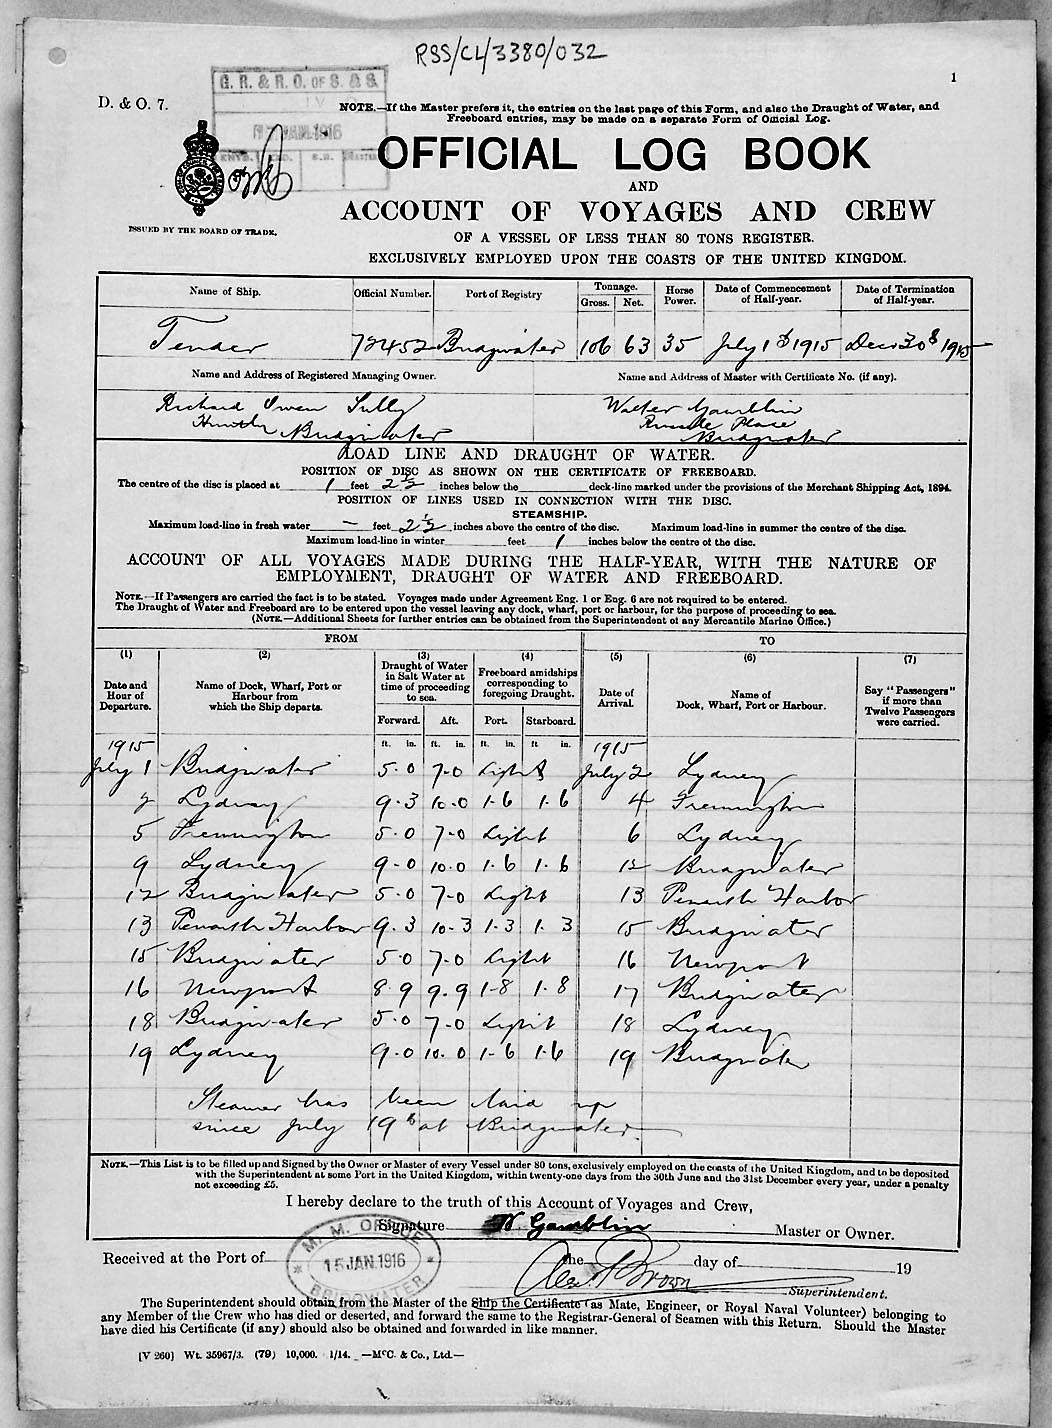 RSS/CL/3380/032
1
G. R. & R. O. OF S. & S.
JAN.1916
D. & O. 7.
NOTE.—If the Master prefers it, the entries on the last page of this Form, and also the Draught of Water, and
Freeboard entries, may be made on a separate Form of Official Log.
OFFICIAL LOG BOOK
AND
ACCOUNT OF VOYAGES AND CREW
ISSUED BY THE BOARD OF TRADE.
OF A VESSEL OF LESS THAN 80 TONS REGISTER.
EXCLUSIVELY EMPLOYED UPON THE COASTS OF THE UNITED KINGDOM.
Name of Ship. Official Number. Port of Registry Tonnage. Gross. Net. Horse Power. Date of Commencement of Half-year. Date of Termination of Half-year.
Tender 72452 Bridgwater 106 63 35 July 1st 1915 Dec 30th 1915
Name and Address of Registered Managing Owner. Name and Address of Master with Certificate No. (if any).
Richard Owen Sully Walter Gamblin
Place
Bridgwater Bridgwater
LOAD LINE AND DRAUGHT OF WATER.
POSITION OF DISC AS SHOWN ON THE CERTIFICATE OF FREEBOARD.
The centre of the disc is placed at 1 feet 2½ inches below the deck-line marked under the provisions of the Merchant Shipping Act, 1894.
POSITION OF LINES USED IN CONNECTION WITH THE DISC.
STEAMSHIP.
Maximum load-line in fresh water — feet 2½ inches above the centre of the disc. Maximum load-line in summer the centre of the disc.
Maximum load-line in winter feet 1 inches below the centre of the disc.
ACCOUNT OF ALL VOYAGES MADE DURING THE HALF-YEAR, WITH THE NATURE OF
EMPLOYMENT, DRAUGHT OF WATER AND FREEBOARD.
NOTE.—If Passengers are carried the fact is to be stated. Voyages made under Agreement Eng. 1 or Eng. 6 are not required to be entered.
The Draught of Water and Freeboard are to be entered upon the vessel leaving any dock, wharf, port or harbour, for the purpose of proceeding to sea.
(NOTE.—Additional Sheets for further entries can be obtained from the Superintendent of any Mercantile Marine Office.)
FROM TO
(1) (2) (3) (4) (5) (6) (7)
Date and Hour of Departure. Name of Dock, Wharf, Port or Harbour from which the Ship departs. Draught of Water in Salt Water at time of proceeding to sea. Freeboard amidships corresponding to foregoing Draught. Date of Arrival. Name of Dock, Wharf, Port or Harbour. Say "Passengers" if more than Twelve Passengers were carried.
Forward. Aft. Port. Starboard.
1915 ft. in. ft. in. ft. in. ft in. 1915
July 1 Bridgwater 5-0 7-0 Light July 2 Lydney
2 Lydney 9-3 10-0 1-6 1-6 4 Fremington
5 Fremington 5-0 7-0 Light 6 Lydney
9 Lydney 9-0 10-0 1-6 1-6 12 Bridgwater
12 Bridgwater 5-0 7-0 Light 13 Penarth Harbor
13 Penarth Harbor 9-3 10-3 1-3 1-3 15 Bridgwater
15 Bridgwater 5-0 7-0 Light 16 Newport
16 Newport 8-9 9-9 1-8 1-8 17 Bridgwater
18 Bridgwater 5-0 7-0 Light 18 Lydney
19 Lydney 9-0 10-0 1-6 1-6 19 Bridgwater
Steamer has been laid up
since July 19th at Bridgwater.
NOTE.—This List is to be filled up and Signed by the Owner or Master of every Vessel under 80 tons, exclusively employed on the coasts of the United Kingdom, and to be deposited
with the Superintendent at some Port in the United Kingdom, within twenty-one days from the 30th June and the 31st December every year, under a penalty
not exceeding £5.
I hereby declare to the truth of this Account of Voyages and Crew,
Signature W Gamblin Master or Owner.
M. M. OFFICE
15 JAN.1916
BRIDGWATER
Received at the Port of the day of 19
Brown Superintendent.
The Superintendent should obtain from the Master of the Ship the Certificate (as Mate, Engineer, or Royal Naval Volunteer) belonging to
any Member of the Crew who has died or deserted, and forward the same to the Registrar-General of Seamen with this Return. Should the Master
have died his Certificate (if any) should also be obtained and forwarded in like manner.
[V 260] Wt. 35967/3. (79) 10,000. 1/14. —McC. & Co., Ltd.—